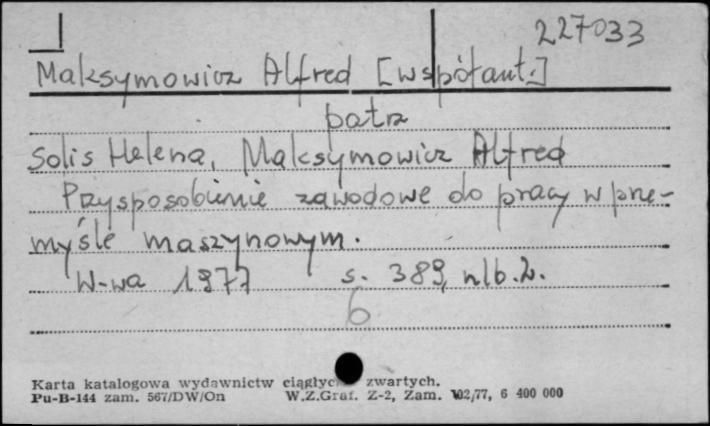 227033
Maksymowicz Alfred [współaut.]
patrz
Solis Helena, Maksymowicz Alfred
Przysposobienie zawodowe do pracy w prze-
myśle maszynowym.
W-wa 1977 s. 389, nlb. 2.
6
Karta katalogowa wydawnictw zwartych.
Pu-B-144 zam. 567/DW/On W.Z.Graf. Z-2, Zam. 102/77, 6 400 000